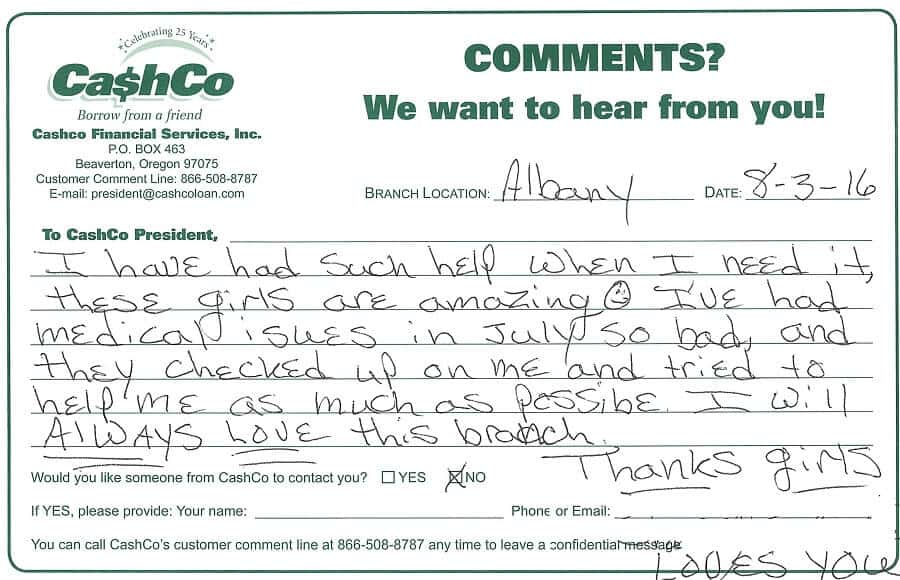 Celebrating 25 Years
Ca$hCo
Borrow from a friend
Cashco Financial Services, Inc.
P.O. BOX 463
Beaverton, Oregon 97075
Customer Comment Line: 866-508-8787
E-mail: president@cashcoloan.com
COMMENTS?
We want to hear from you!
BRANCH LOCATION: Albany DATE: 8-3-16
To CashCo President,
I have had such help when I need it,
these girls are amazing ☺ I've had
medical isues in July so bad, and
they checked up on me and tried to
help me as much as possibe. I will
ALWAYS LOVE this branch.
Thanks girls
Would you like someone from CashCo to contact you? ☐ YES ☒ NO
If YES, please provide: Your name: Phone or Email:
You can call CashCo's customer comment line at 866-508-8787 any time to leave a confidential message
LOVES YOU